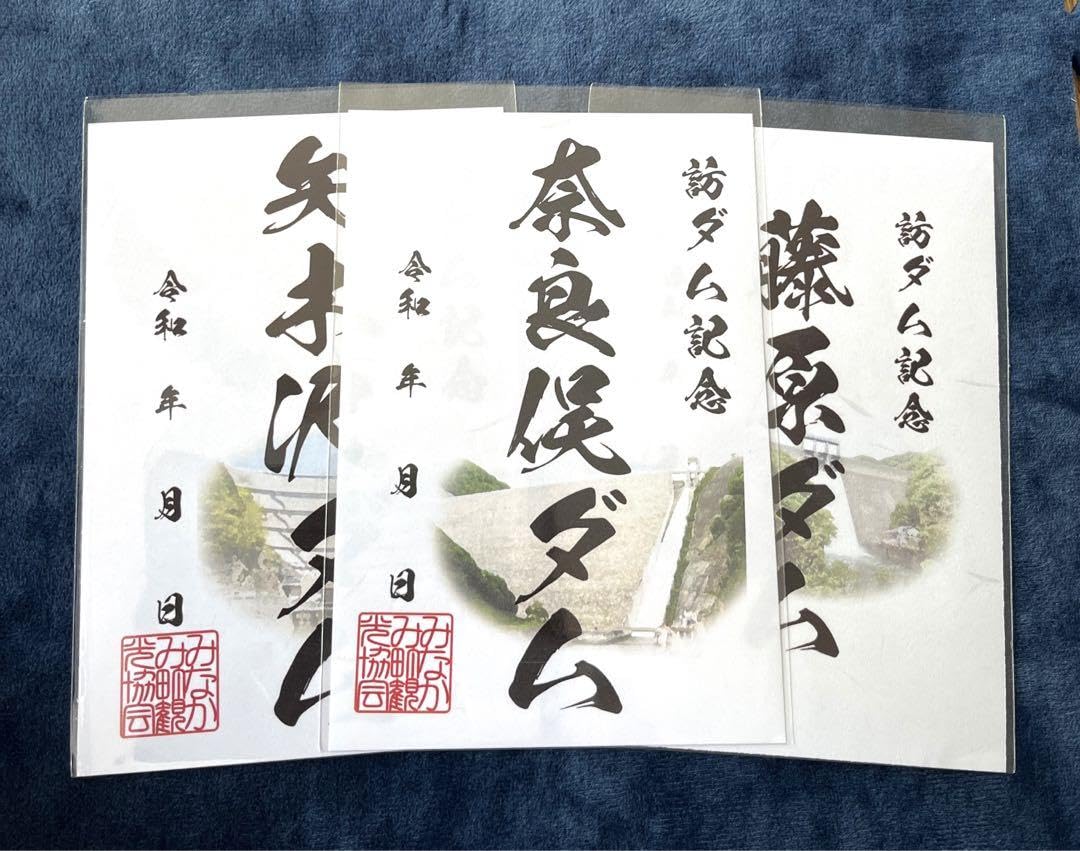 訪ダム記念
藤原ダム
訪ダム記念
奈良俣ダム
令和 年 月 日
みなか
み町観
光協会
矢木沢ダム
令和 年 月 日
みなか
み町観
光協会